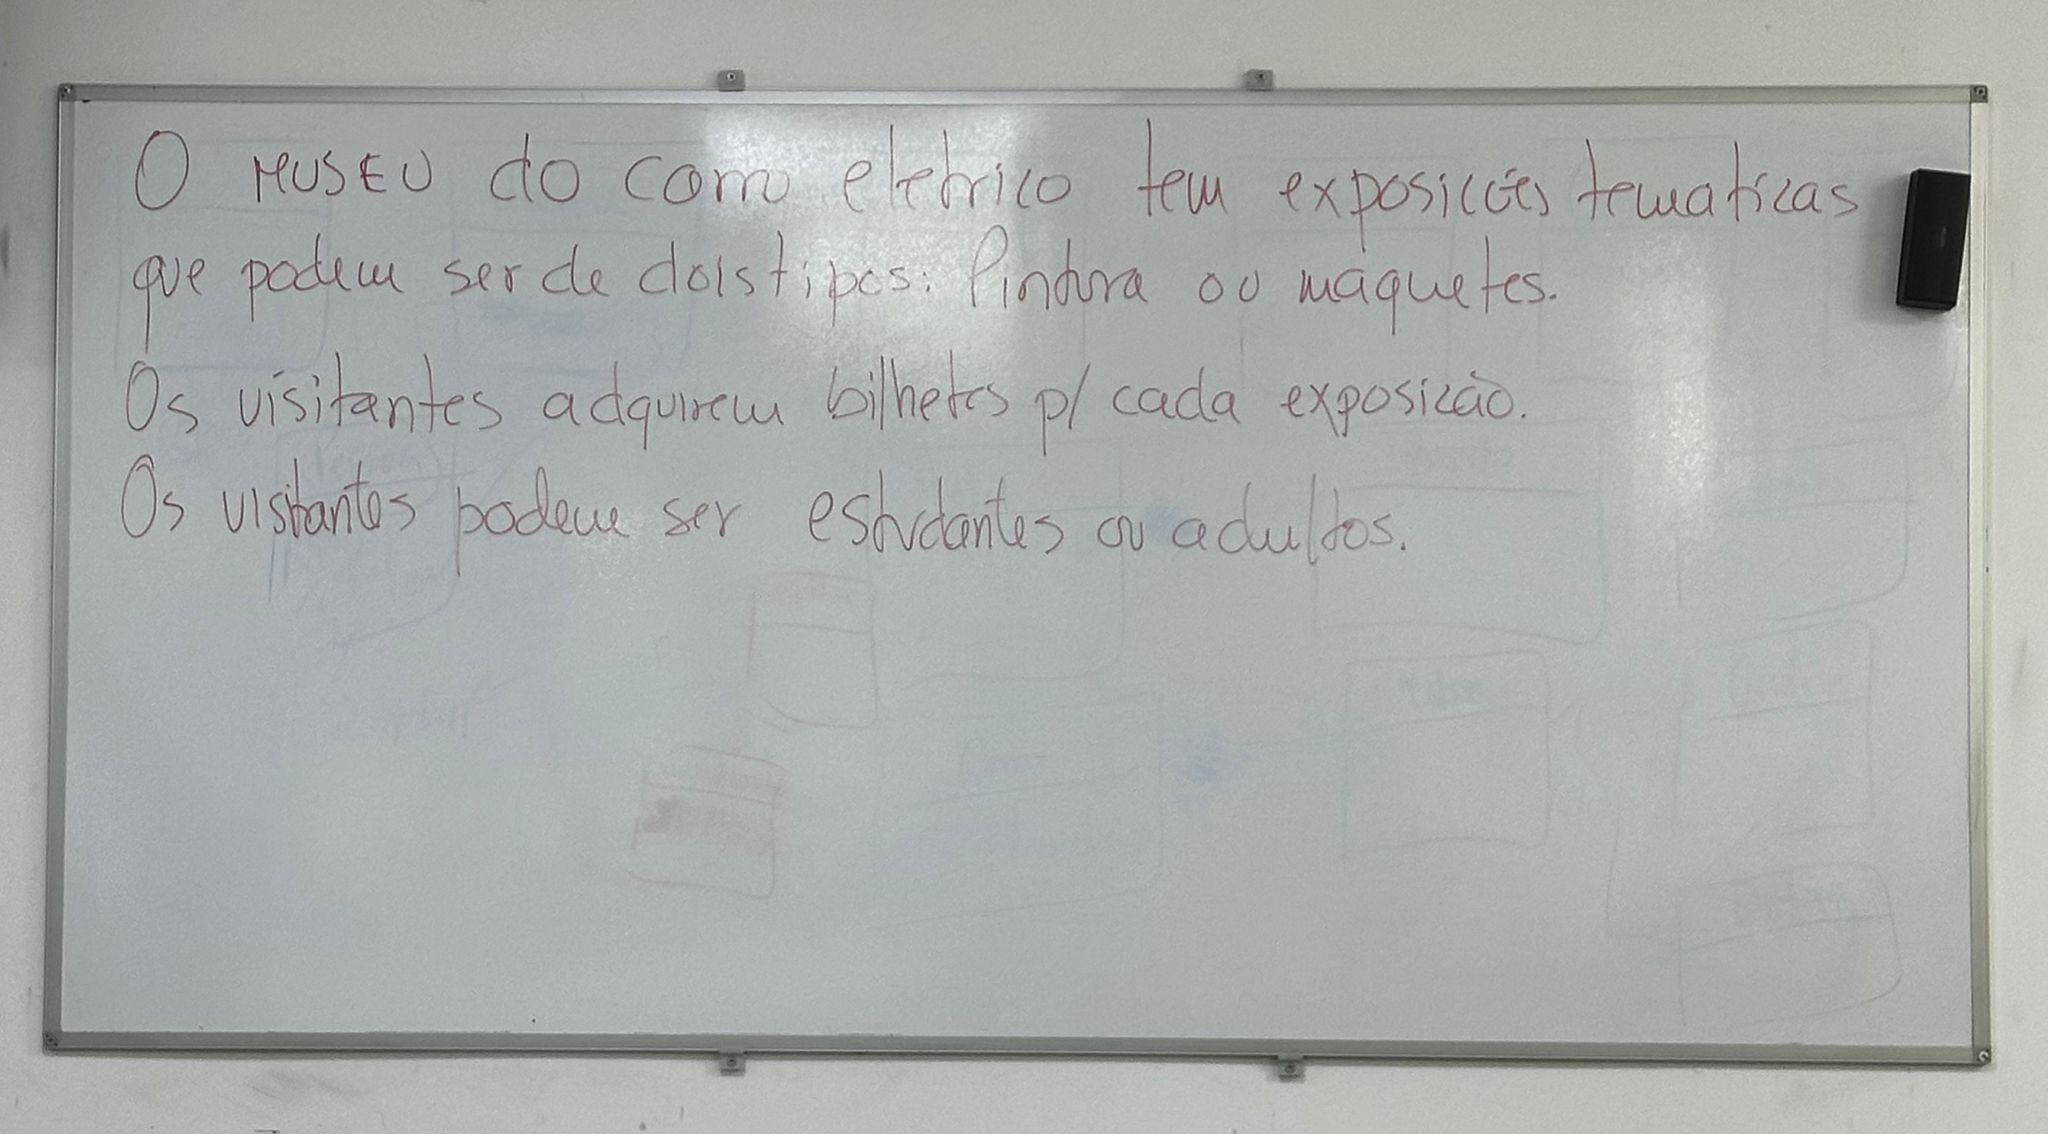 O MUSEU do carro eletrico tem exposicões tematicas
que podem ser de dois tipos: Pintura ou maquetes.
Os visitantes adquirem bilhetes p/ cada exposicão.
Os visitantes podem ser estudantes ou adultos.